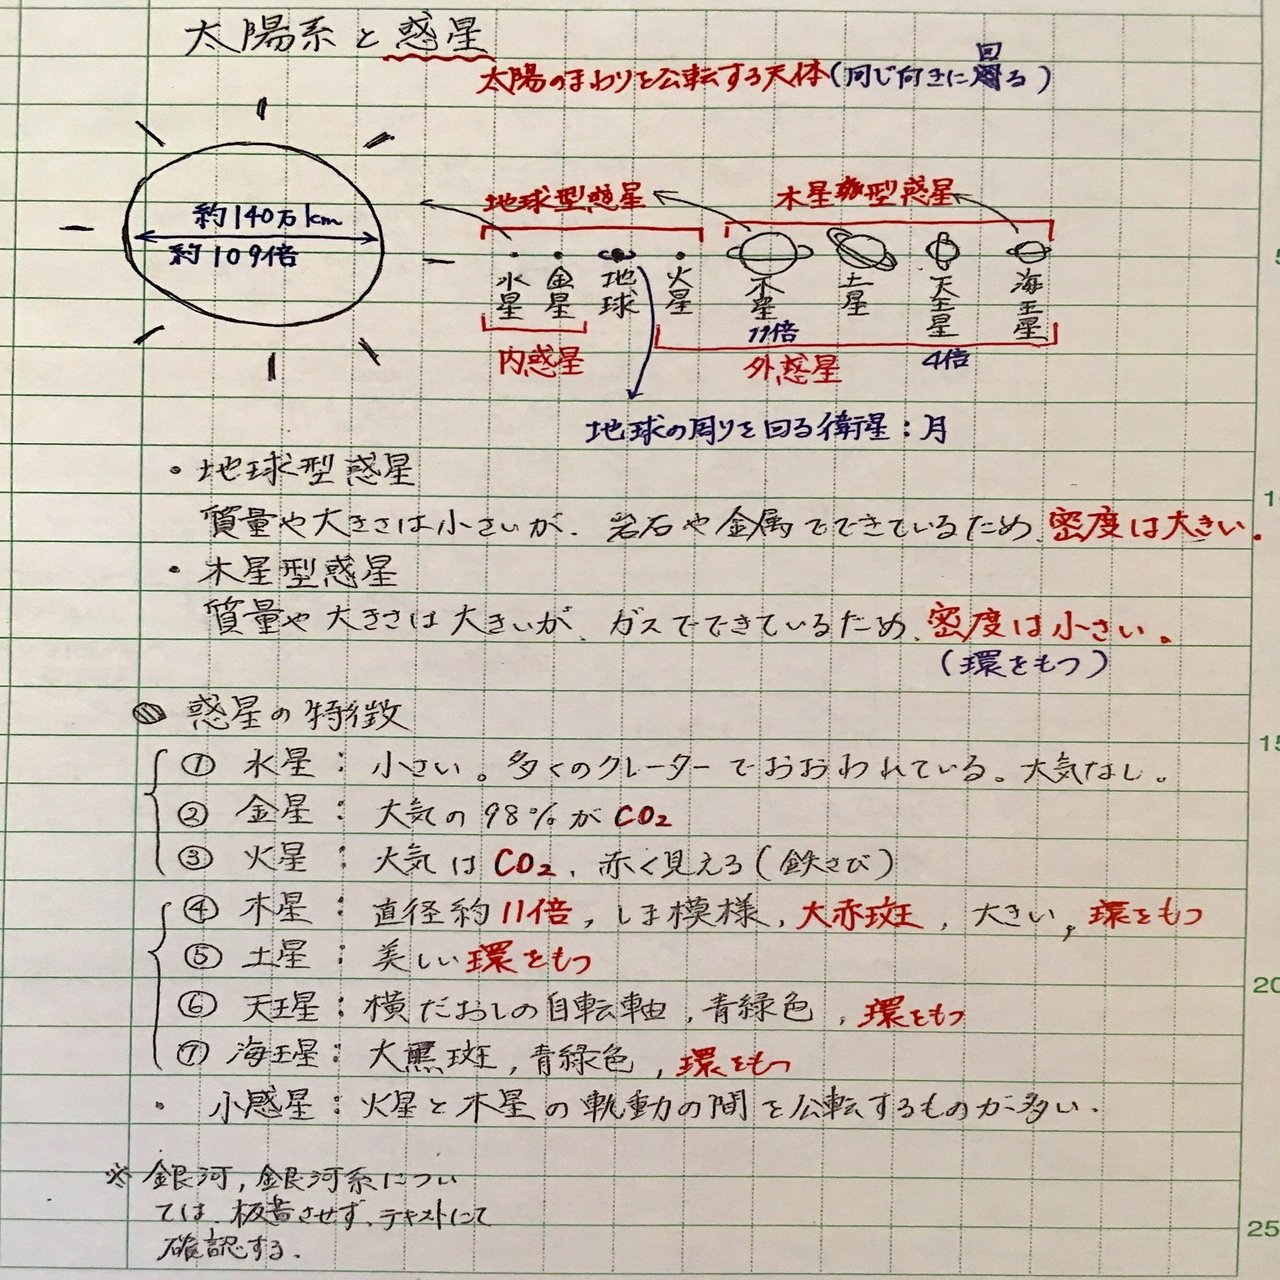 太陽系と惑星
太陽のまわりを公転する天体(同じ向きに回る)
約140万km
約109倍
地球型惑星
木星型惑星
水星
金星
地球
火星
木星
土星
天王星
海王星
11倍
4倍
内惑星
外惑星
地球の周りを回る衛星:月
・地球型惑星
質量や大きさは小さいが、岩石や金属でできているため、密度は大きい。
・木星型惑星
質量や大きさは大きいが、ガスでできているため、密度は小さい。
(環をもつ)
惑星の特徴
① 水星:小さい。多くのクレーターでおおわれている。大気なし。
② 金星:大気の98%がCO2
③ 火星:大気はCO2、赤く見える(鉄さび)
④ 木星:直径約11倍,しま模様,大赤斑,大きい,環をもつ
⑤ 土星:美しい環をもつ
⑥ 天王星:横だおしの自転軸,青緑色,環をもつ
⑦ 海王星:大黒斑,青緑色,環をもつ
・小惑星:火星と木星の軌動の間を公転するものが多い.
※銀河,銀河系につい
ては、板書させず、テキストにて
確認する.
5
1
15
20
25